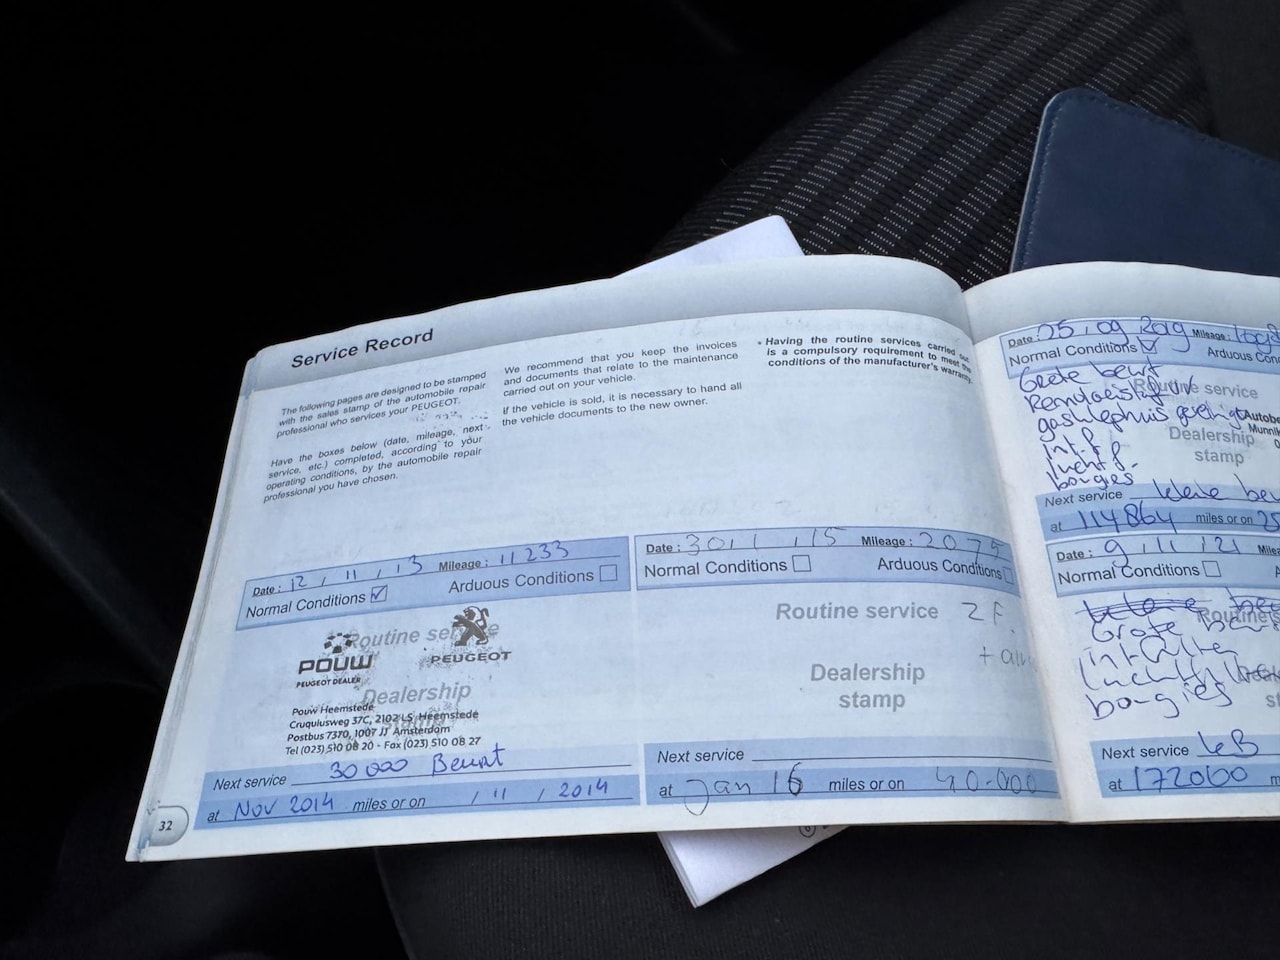 Service Record
The following pages are designed to be stamped
with the sales stamp of the automobile repair
professional who services your PEUGEOT.
Have the boxes below (date, mileage, next
service, etc.) completed, according to your
operating conditions, by the automobile repair
professional you have chosen.
We recommend that you keep the invoices
and documents that relate to the maintenance
carried out on your vehicle.
If the vehicle is sold, it is necessary to hand all
the vehicle documents to the new owner.
• Having the routine services carried out
is a compulsory requirement to meet the
conditions of the manufacturer's warranty.
Date: 12 / 11 / 13 Mileage: 11233
Normal Conditions Arduous Conditions
Routine service
POUW PEUGEOT
PEUGEOT DEALER
Dealership
stamp
Pouw Heemstede
Cruquiusweg 37C, 2102 LS Heemstede
Postbus 7370, 1007 JJ Amsterdam
Tel (023) 510 08 20 - Fax (023) 510 08 27
Next service 30 000 Beurt
at Nov 2014 miles or on / 11 / 2014
32
Date: Mileage:
Normal Conditions Arduous Conditions
Routine service
Dealership
stamp
Next service
at Jan 16 miles or on 40.000
Date: 05.09.2019 Mileage:
Normal Conditions Arduous
Grote beurt
Routine service
gereinigd
Dealership
stamp
int.f
bougies
Next service
at 114864 miles or on
Date: 9 / 11 / 21
Normal Conditions
Grote
bougies
Next service
at 172060